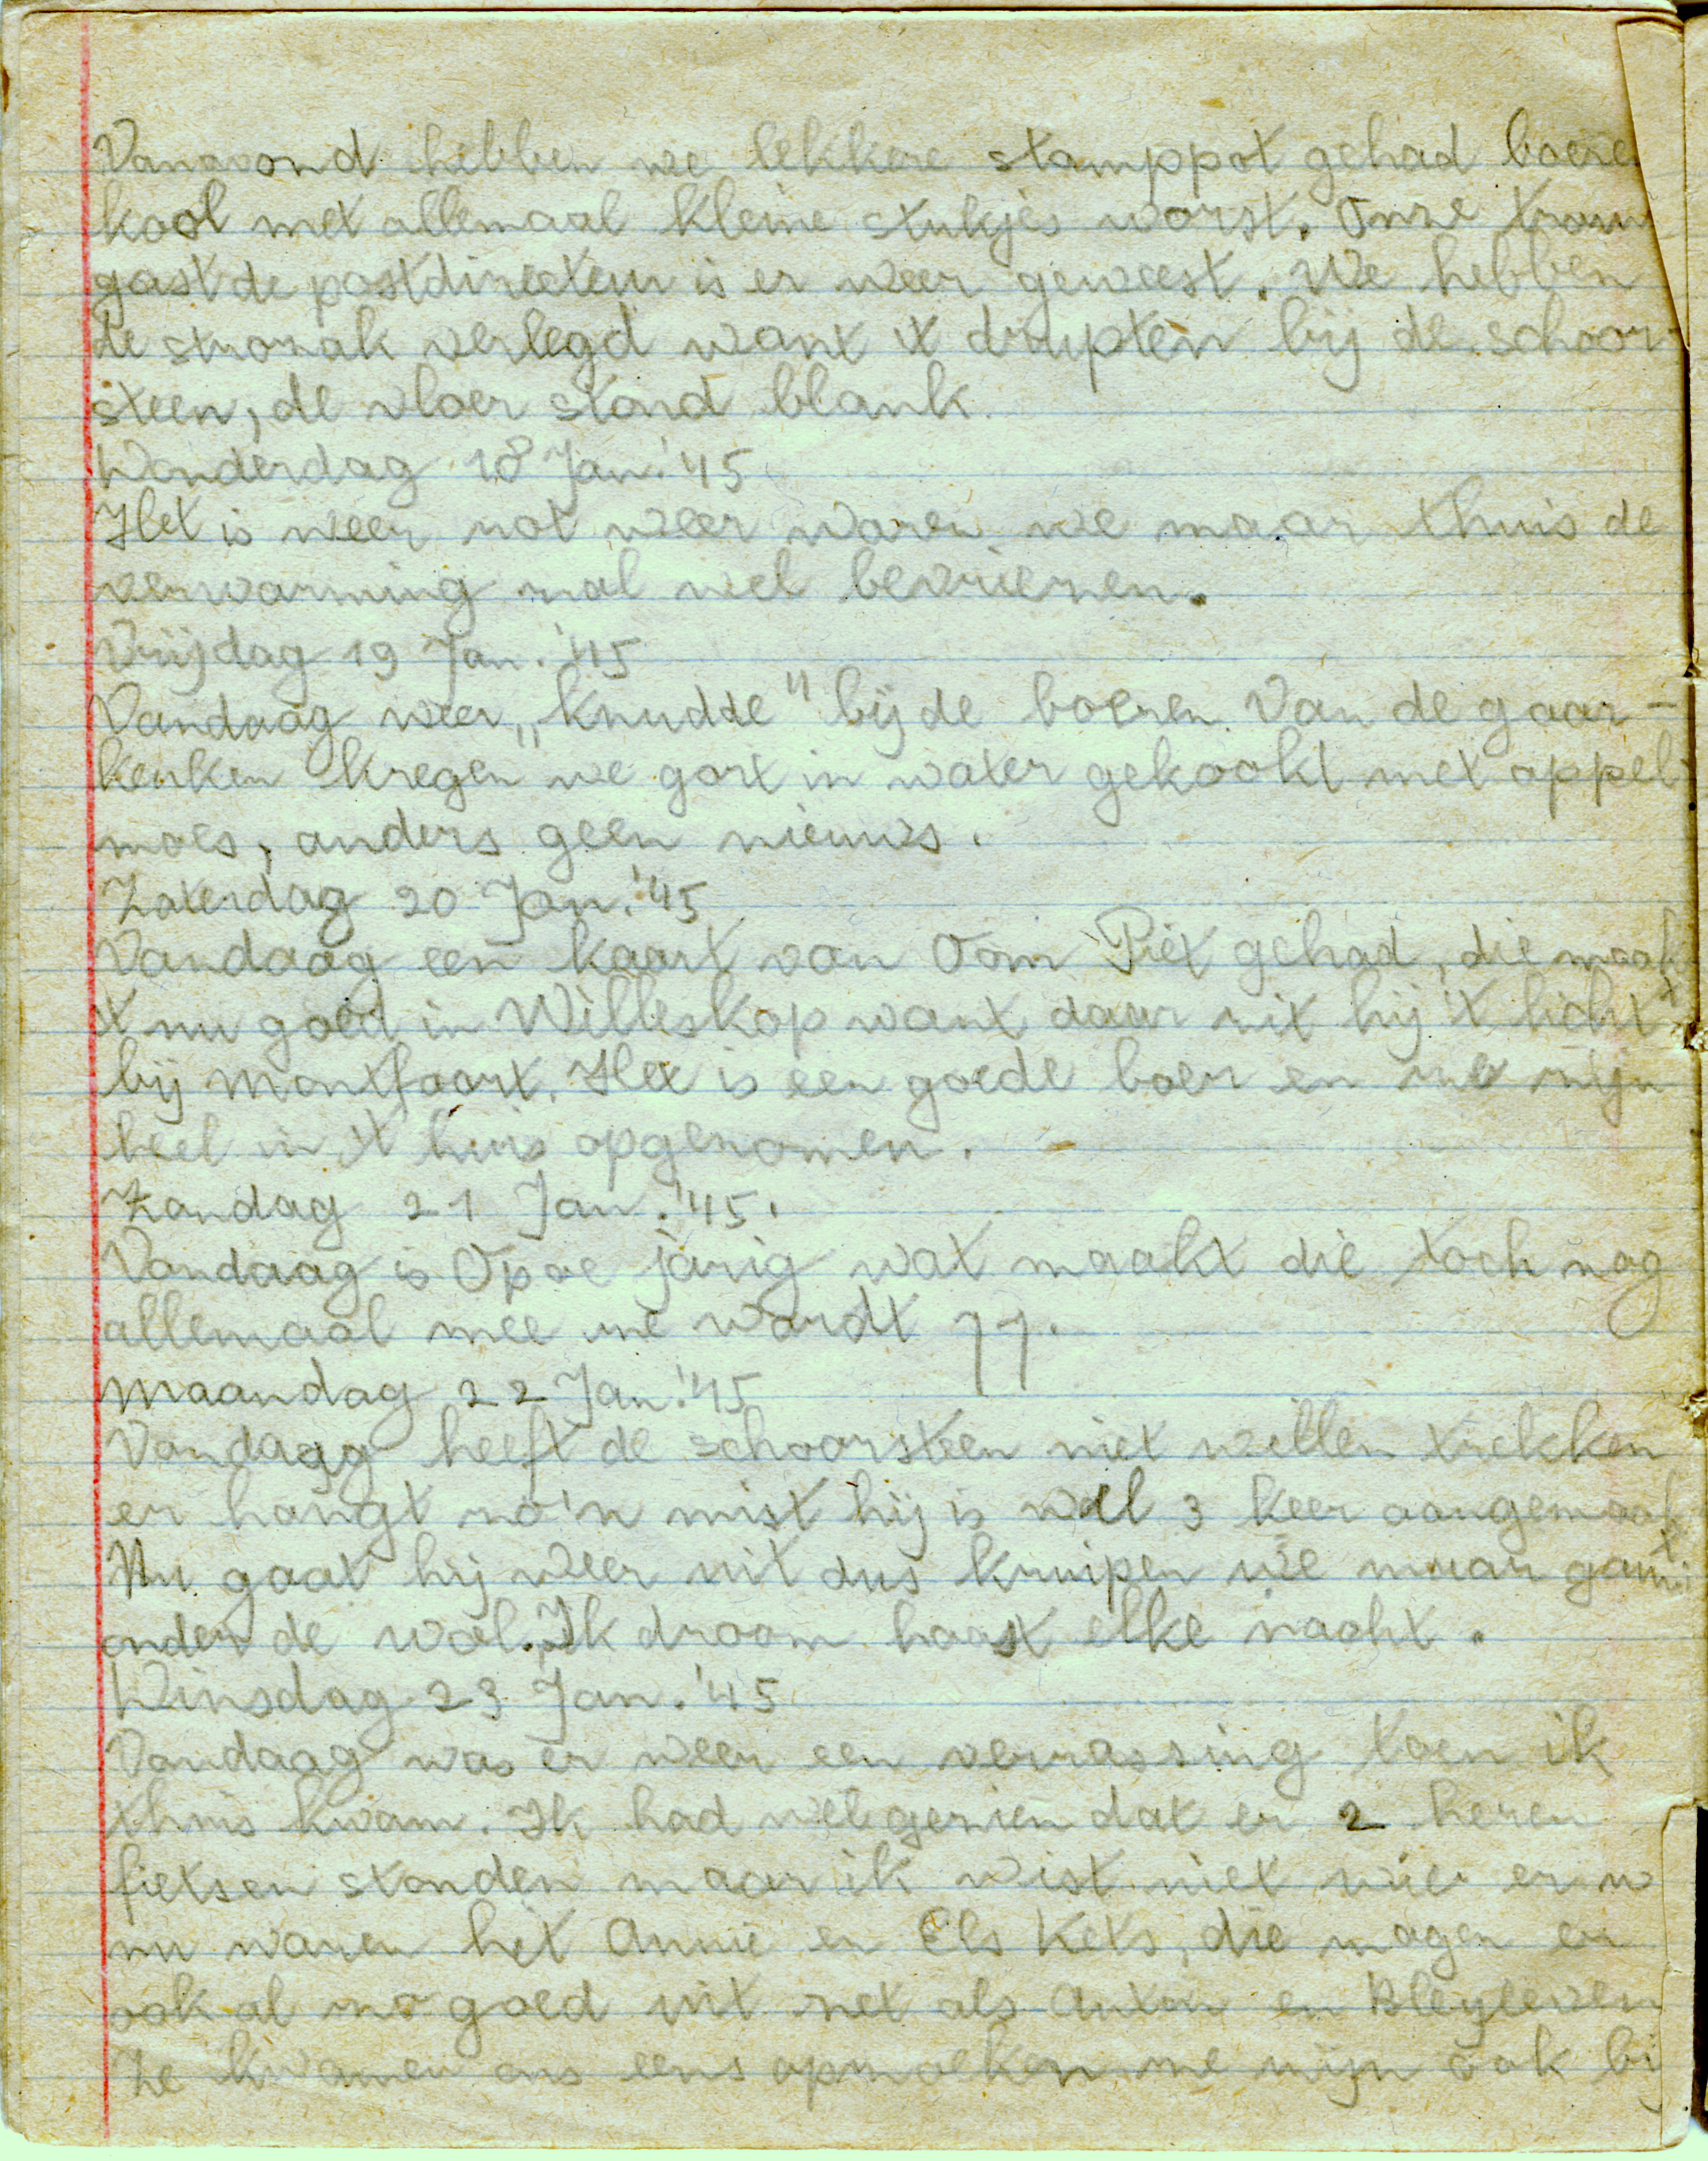 Vanavond hebben we lekkere stamppot gehad boere
kool met allemaal kleine stukjes worst. Onze trouw
gast de postdirecteur is er weer geweest. We hebben
de strozak verlegd want 't drupten bij de schoor-
steen, de vloer stond blank.
Donderdag 18 Jan. '45
Het is weer rot weer waren we maar thuis de
verwarming zal wel bevriezen.
Vrijdag 19 Jan. '45
Vandaag weer „knudde" bij de boeren. Van de gaar-
keuken kregen we gort in water gekookt met appel-
moes, anders geen nieuws.
Zaterdag 20 Jan. '45
Vandaag een kaart van Oom Piet gehad, die maakt
't nu goed in Willeskop want daar zit hij 't licht
bij Montfoort. Het is een goede boer en ze zijn
heel in 't huis opgenomen.
Zondag 21 Jan. '45.
Vandaag is Opoe jarig wat maakt die toch nog
allemaal mee ze wordt 77.
Maandag 22 Jan. '45
Vandaag heeft de schoorsteen niet willen trekken
er hangt zo'n mist hij is wel 3 keer aangemaakt
Nu gaat hij weer uit dus kruipen we maar gauw
onder de wol. Ik droom haast elke nacht.
Dinsdag 23 Jan. '45
Vandaag was er weer een verrassing toen ik
thuis kwam. Ik had wel gezien dat er 2 heren
fietsen stonden maar ik wist niet wie er w
nu waren het Annie en Els Kets, die zagen er
ook al zo goed uit net als Anton en Bleyleven
Ze kwamen ons eens opzoeken ze zijn ook bij